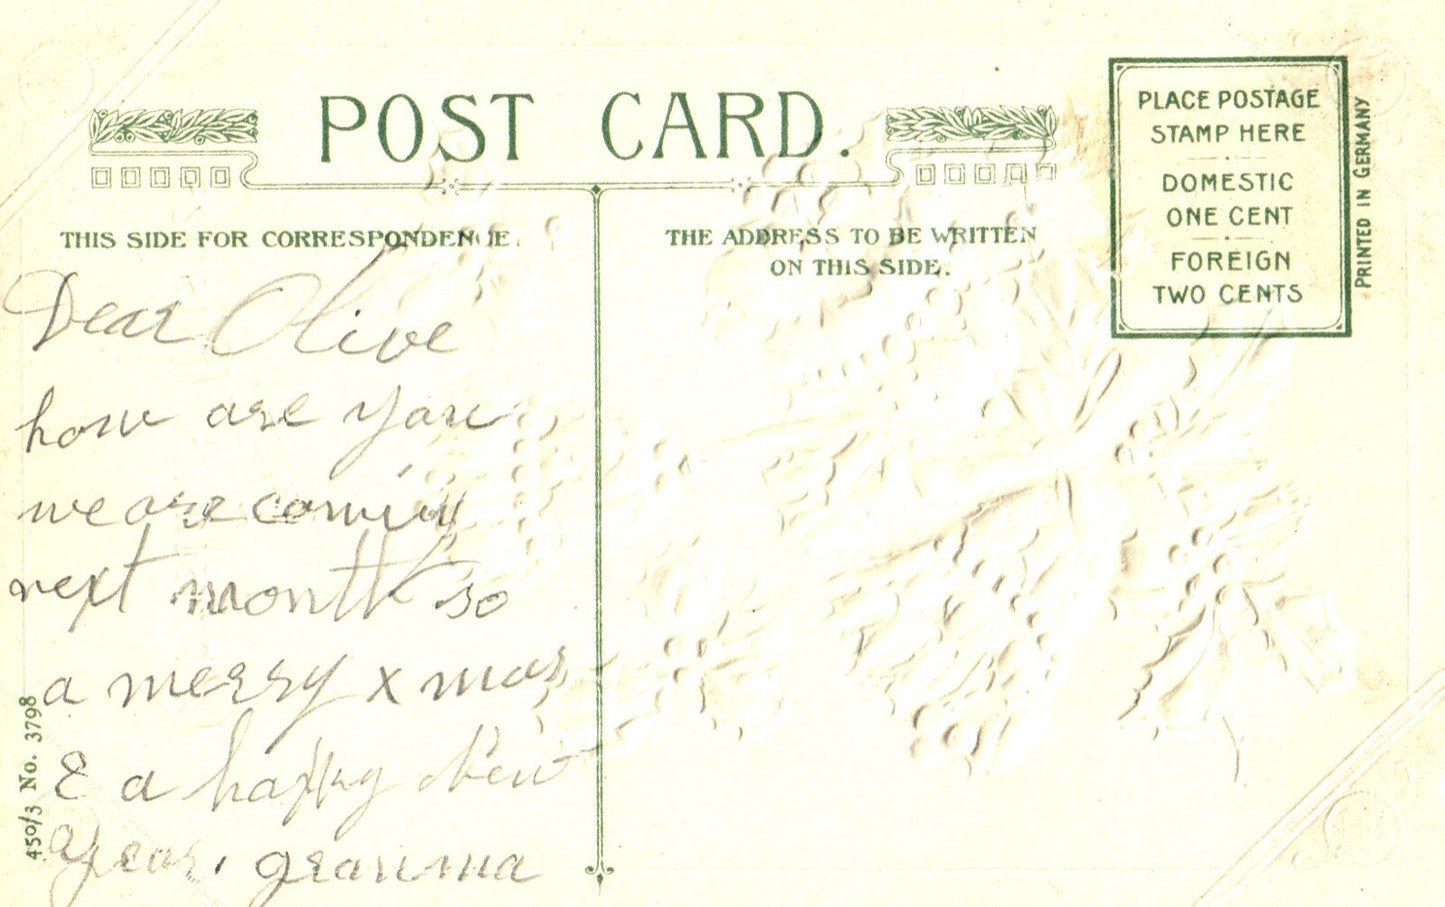 POST CARD.
THIS SIDE FOR CORRESPONDENCE.
THE ADDRESS TO BE WRITTEN
ON THIS SIDE.
PLACE POSTAGE
STAMP HERE
DOMESTIC
ONE CENT
FOREIGN
TWO CENTS
PRINTED IN GERMANY
450/3 No. 3798
Dear Olive
how are you
we are comin
next month so
a merry x mas
& a happy New
year, granma